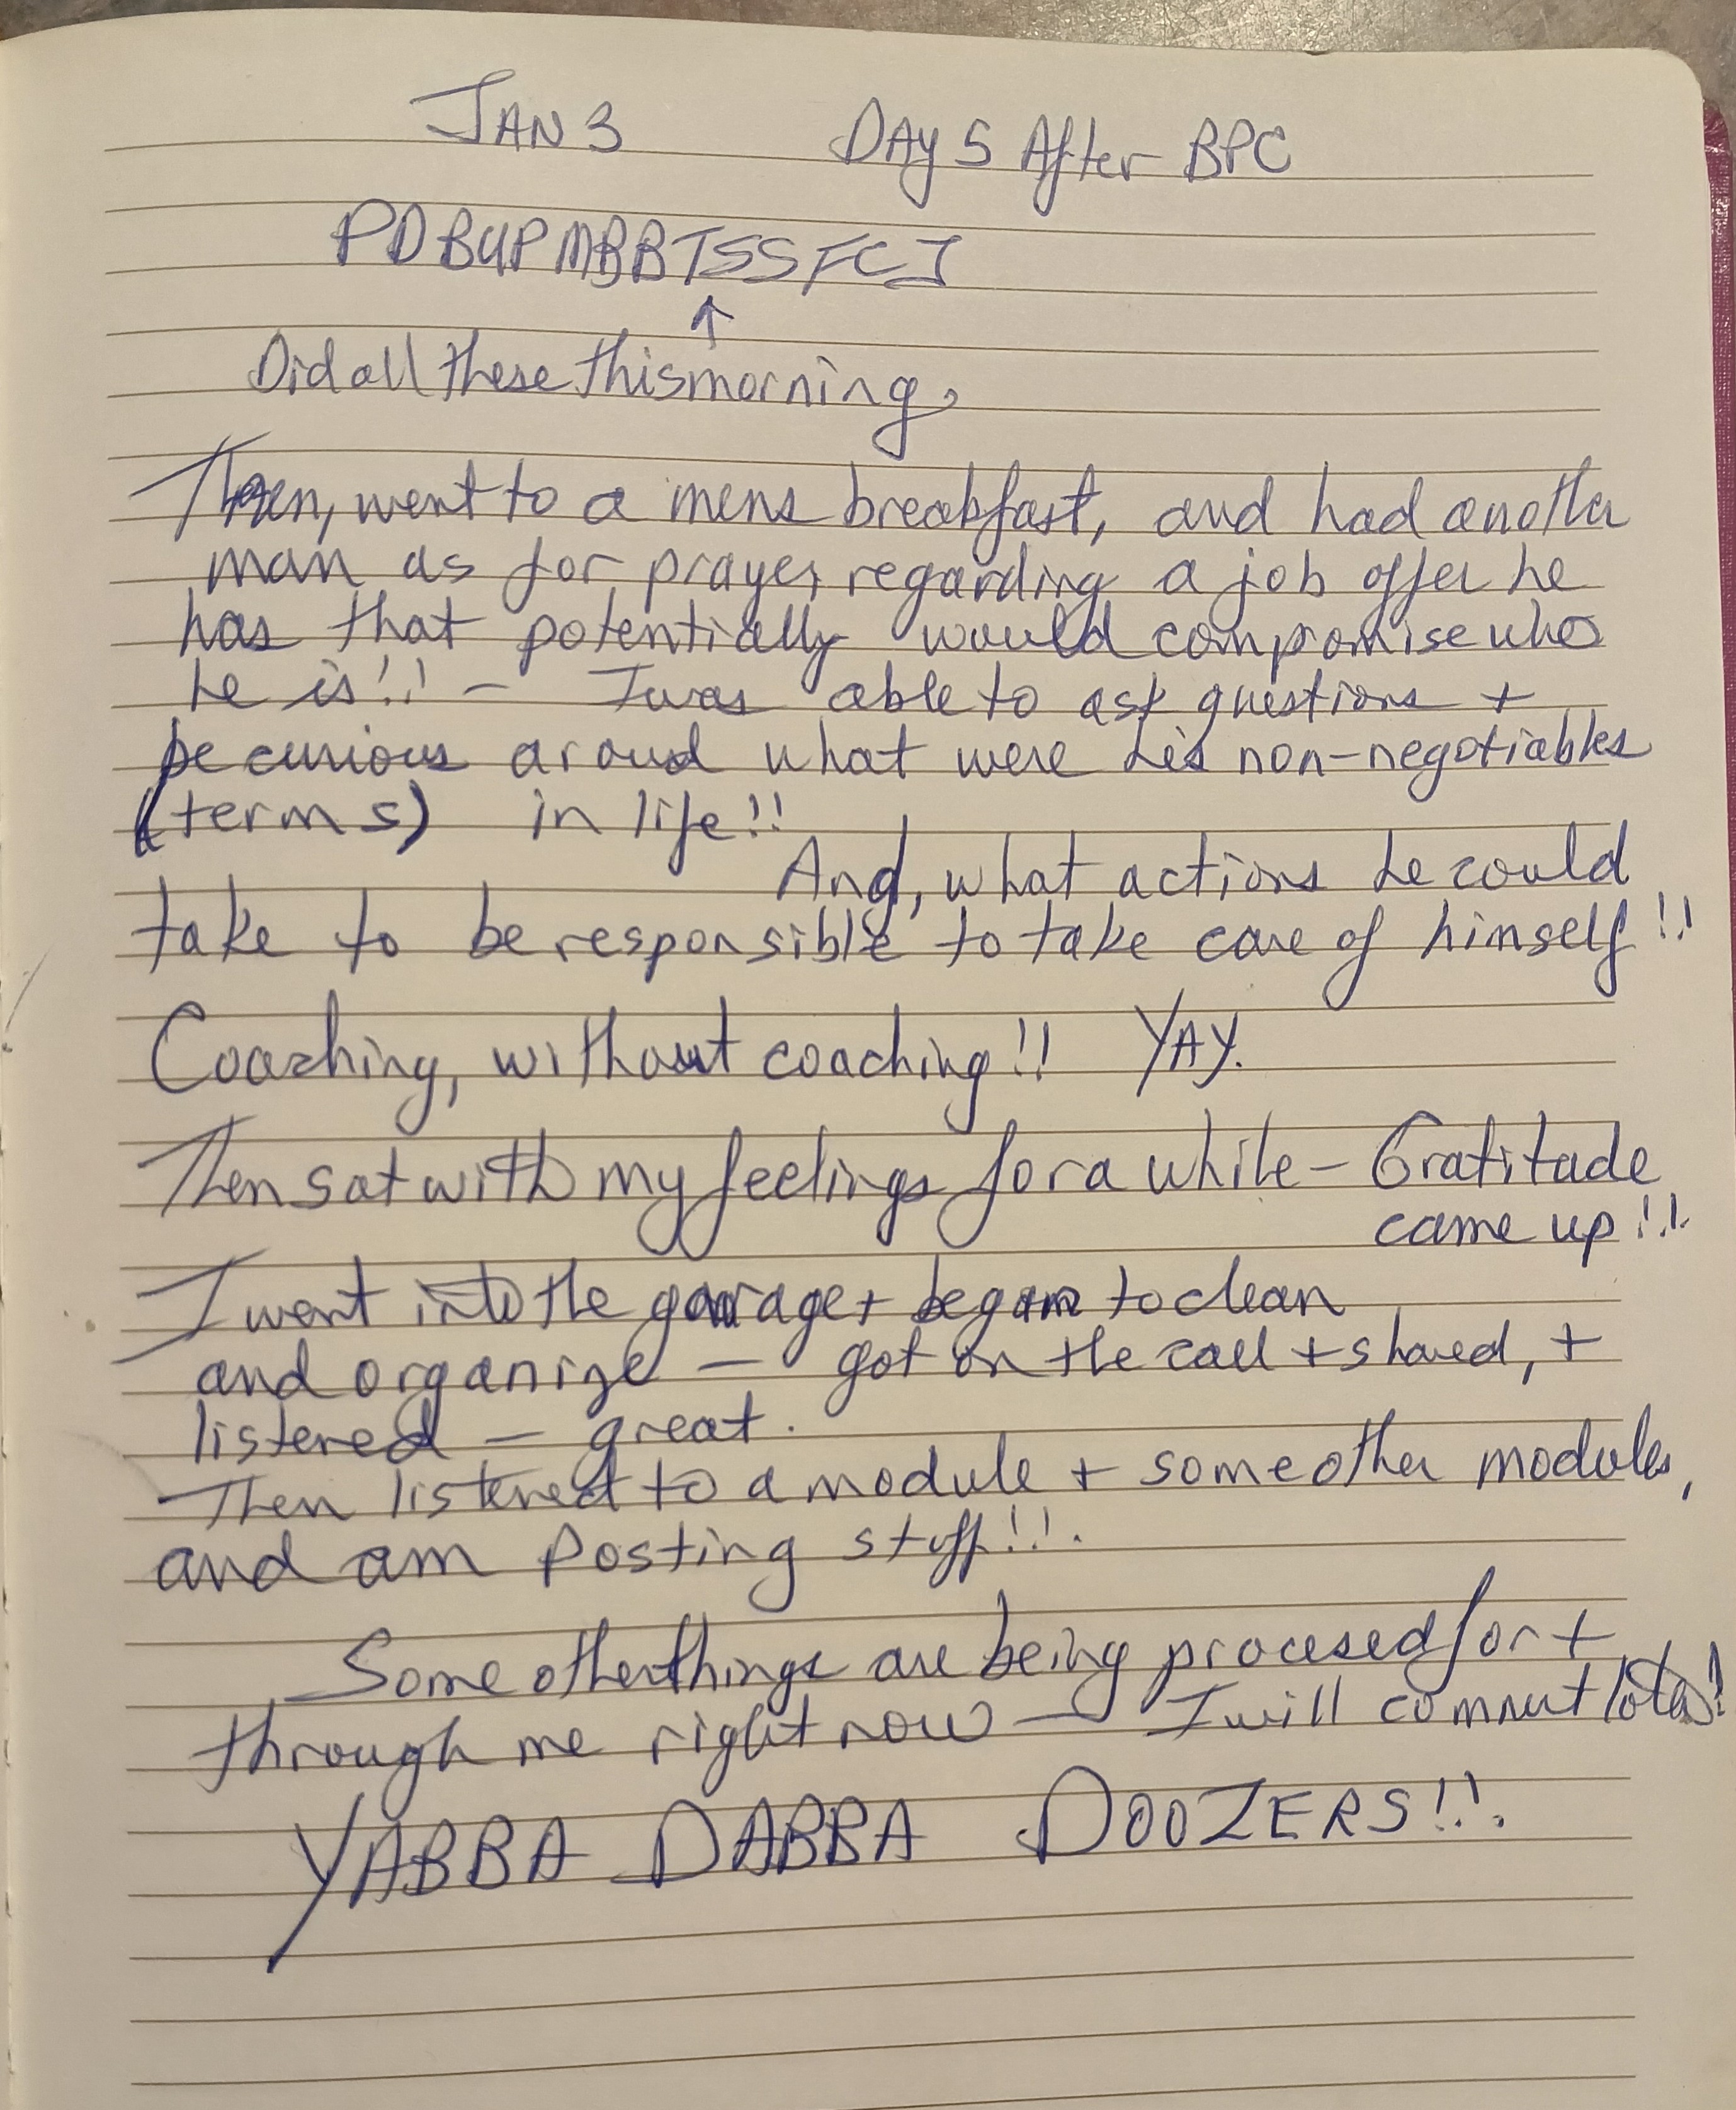 JAN 3 DAY 5 After BPC
PDBUPMBBTSSFCJ
↑
Did all these this morning,
Then, went to a mens breakfast, and had another
man as for prayer, regarding a job offer he
has that potentially would compromise who
he is!! - I was able to ask questions +
be curious around what were his non-negotiables
(terms) in life!!
And, what actions he could
take to be responsible to take care of himself!!
Coaching, without coaching!! YAY.
Then sat with my feelings for a while - Gratitude
came up!!
I went into the garage + began to clean
and organize - got on the call + shared, +
listened - great.
Then listened to a module + some other modules,
and am posting stuff!!
Some other things are being processed for +
through me right now - I will comment later!
YABBA DABBA DOOZERS!!